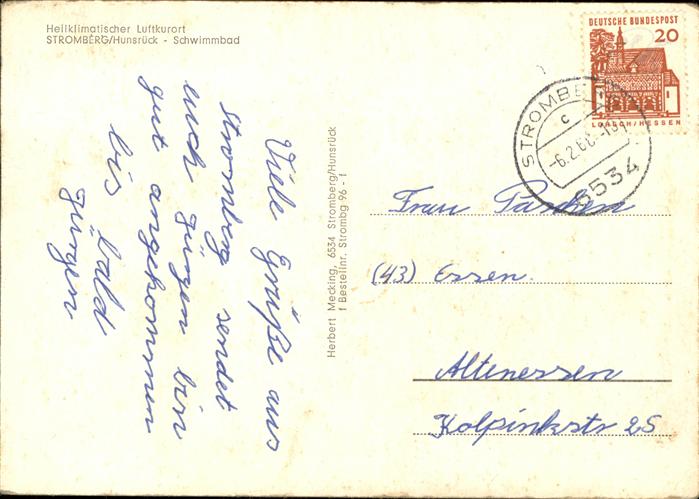 Heilklimatischer Luftkurort
STROMBERG/Hunsrück - Schwimmbad
Viele Grüße aus
Stromberg sendet
euch Jürgen bin
gut angekommen
bis bald
Jurgen
Herbert Mecking, 6534 Stromberg/Hunsrück
f Bestellnr. Strombg 96 - f
DEUTSCHE BUNDESPOST
20
LORSCH/HESSEN
STROMBE
c
-6.2.68.-
6534
Frau
(43) Essen.
Altenessen
Kolpinkstr 25